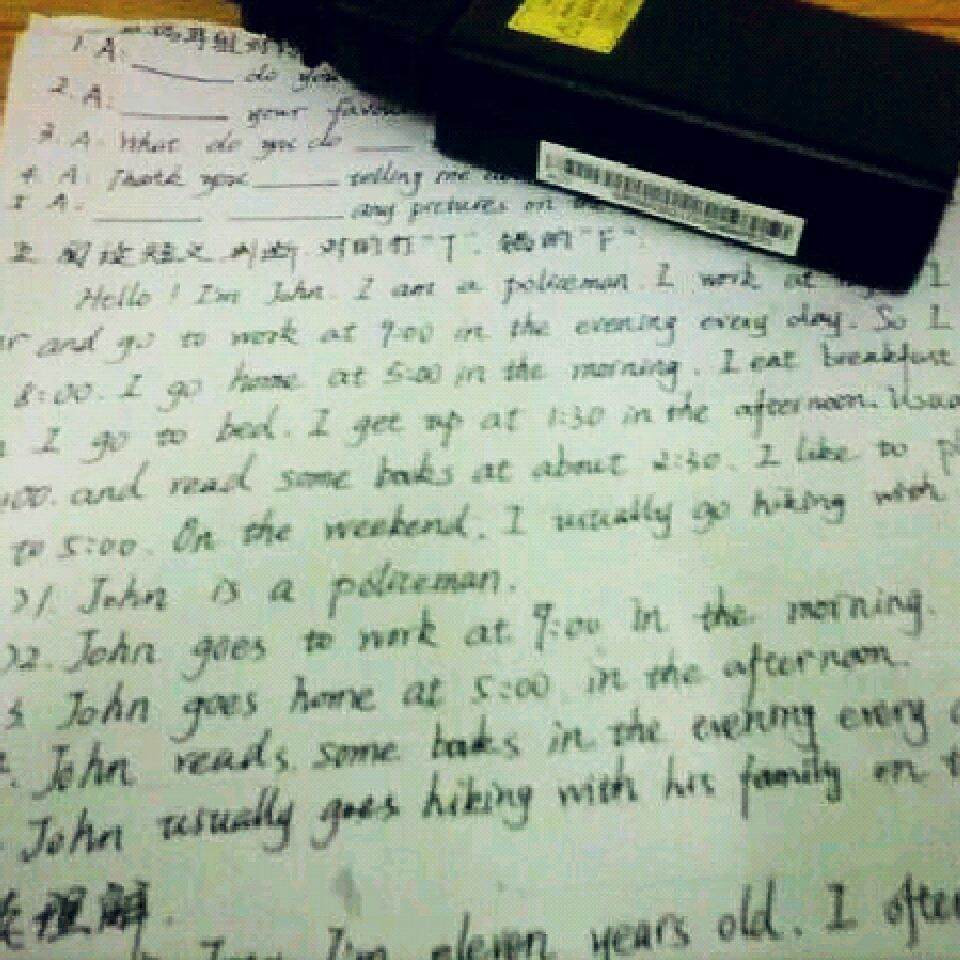 1. A: ____ do you
2. A: ____ your
3. A: What do you do ____
4. A: Thank you ____ telling me
5 A. ____ ____ any pictures on
阅读短文判断 对的打"T". 错的"F".
Hello! I'm John. I am a policeman. I work at I
and go to work at 9:00 in the evening every day. So I
8:00. I go home at 5:00 in the morning. I eat breakfast
I go to bed. I get up at 1:30 in the afternoon.
and read some books at about 2:30. I like to
to 5:00. On the weekend. I usually go hiking with
)1. John is a policeman.
)2. John goes to work at 9:00 in the morning.
3. John goes home at 5:00 in the afternoon.
John reads some books in the evening every
John usually goes hiking with his family on
理解.
I'm eleven years old. I